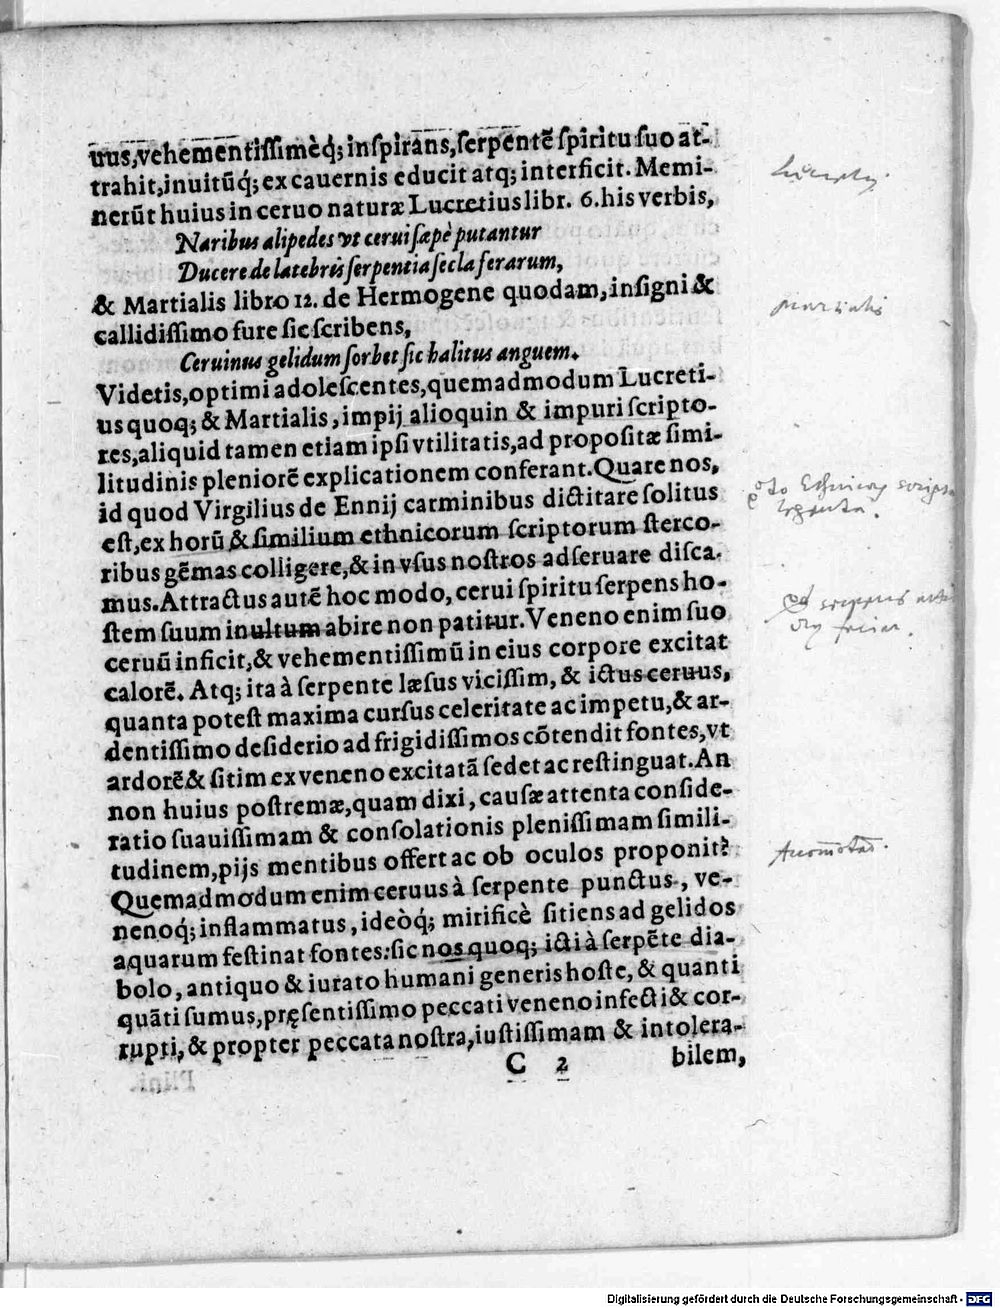 uus,vehementiſſimèq́; inſpirans,ſerpentẽ ſpiritu ſuo at-
trahit,inuitũq́; ex cauernis educit atq; interficit. Memi-
nerũt huius in ceruo naturæ Lucretius libr. 6. his verbis,
Naribus alipedes vt cerui ſæpè putantur
Ducere de latebris ſerpentia ſecla ferarum,
& Martialis libro 12. de Hermogene quodam, inſigni &
callidiſſimo fure ſic ſcribens,
Ceruinus gelidum ſorbet ſic halitus anguem.
Videtis,optimi adoleſcentes,quemadmodum Lucreti-
us quoq; & Martialis, impij alioquin & impuri ſcripto-
res,aliquid tamen etiam ipſi vtilitatis,ad propoſitæ ſimi-
litudinis pleniorẽ explicationem conferant.Quare nos,
id quod Virgilius de Ennij carminibus dictitare ſolitus
eſt,ex horũ & ſimilium ethnicorum ſcriptorum ſterco-
ribus gẽmas colligere,& in vſus noſtros adſeruare diſca-
mus.Attractus autẽ hoc modo, cerui ſpiritu ſerpens ho-
ſtem ſuum inultum abire non patitur. Veneno enim ſuo
ceruũ inficit,& vehementiſſimũ in eius corpore excitat
calorẽ. Atq; ita à ſerpente læſus viciſſim, & ictus ceruus,
quanta poteſt maxima curſus celeritate ac impetu,& ar-
dentiſſimo deſiderio ad frigidiſſimos cõtendit fontes,vt
ardorẽ & ſitim ex veneno excitatã ſedet ac reſtinguat.An
non huius poſtremæ,quam dixi, cauſæ attenta conſide-
ratio ſuauiſſimam & conſolationis pleniſſimam ſimili-
tudinem,pijs mentibus offert ac ob oculos proponit?
Quemadmodum enim ceruus à ſerpente punctus, ve-
nenoq́; inflammatus, ideòq́; mirificè ſitiens ad gelidos
aquarum feſtinat fontes: ſic nos quoq; icti à ſerpẽte dia-
bolo, antiquo & iurato humani generis hoſte, & quanti
quãti ſumus,pręſentiſſimo peccati veneno infecti & cor-
rupti, & propter peccata noſtra,iuſtiſſimam & intolera-
C 2 bilem,
Martialis
Digitalisierung gefördert durch die Deutsche Forschungsgemeinschaft - DFG